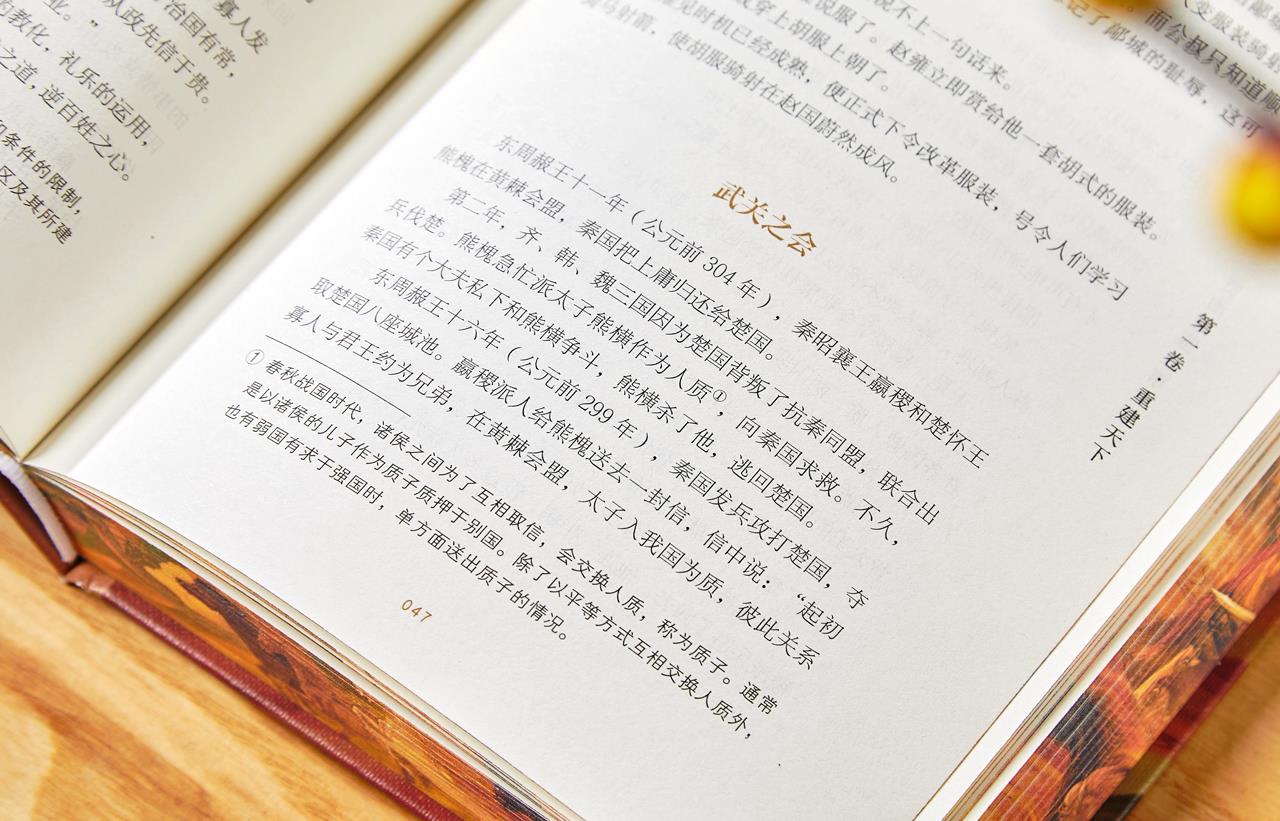 寡人发
治国有常，
业。”
从政先信于贵。
的教化，礼乐的运用，
之道，逆百姓之心。
条件的限制，
区及其所建
而公叔只知道顺
记了鄗城的耻辱，这可
说不上一句话来。
说服了。赵雍立即赏给他一套胡式的服装。
穿上胡服上朝了。
见时机已经成熟，便正式下令改革服装，号令人们学习
骑马射箭，使胡服骑射在赵国蔚然成风。
武关之会
东周赧王十一年（公元前 304 年），秦昭襄王嬴稷和楚怀王
熊槐在黄棘会盟，秦国把上庸归还给楚国。
第二年，齐、韩、魏三国因为楚国背叛了抗秦同盟，联合出
兵伐楚。熊槐急忙派太子熊横作为人质①，向秦国求救。不久，
秦国有个大夫私下和熊横争斗，熊横杀了他，逃回楚国。
东周赧王十六年（公元前 299 年），秦国发兵攻打楚国，夺
取楚国八座城池。嬴稷派人给熊槐送去一封信，信中说：“起初
寡人与君王约为兄弟，在黄棘会盟，太子入我国为质，彼此关系
① 春秋战国时代，诸侯之间为了互相取信，会交换人质，称为质子。通常
是以诸侯的儿子作为质子质押于别国。除了以平等方式互相交换人质外，
也有弱国有求于强国时，单方面送出质子的情况。
047
第一卷·重建天下